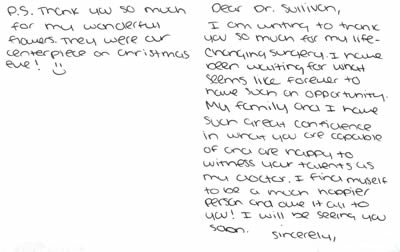 P.S. Thank you so much
for my wonderful
flowers. They were our
centerpiece on Christmas
eve!
Dear Dr. Sullivan,
I am writing to thank
you so much for my life-
changing surgery. I have
been waiting for what
seems like forever to
have such an opportunity.
My family and I have
such great confidence
in what you are capable
of and are happy to
witness your talents as
my doctor. I find myself
to be a much happier
person and owe it all to
you! I will be seeing you
soon.
Sincerely,